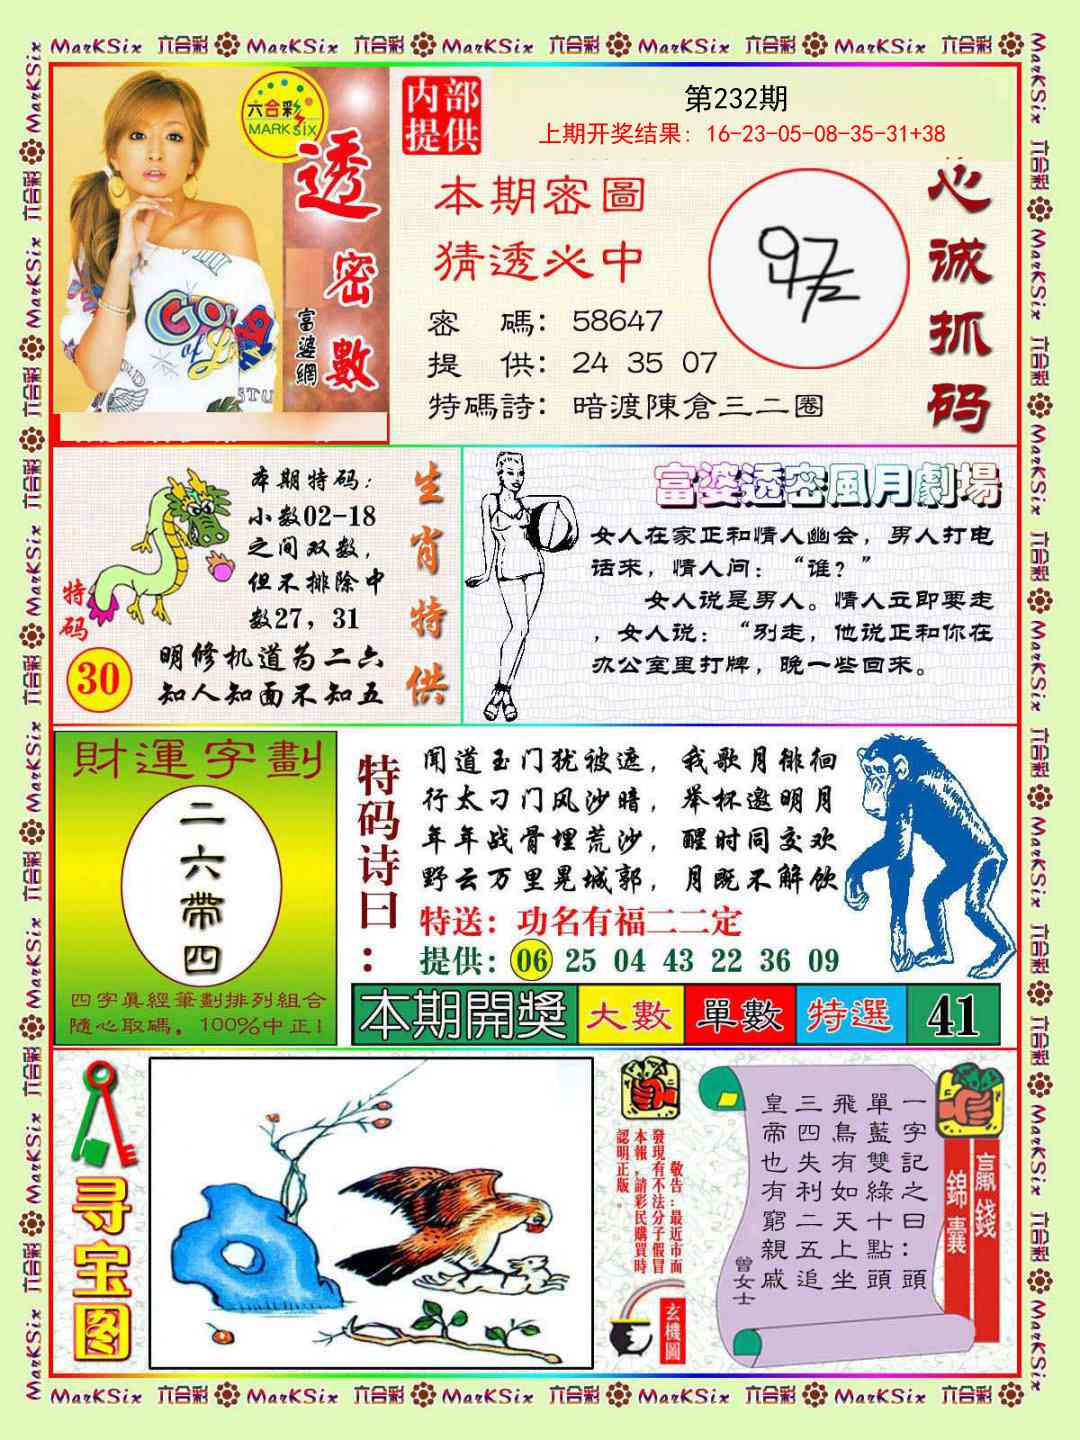 MarKSix 六合彩 MarKSix 六合彩 MarKSix 六合彩 MarKSix 六合彩 MarKSix 六合彩
六合彩
MARK SIX
透密數
富婆網
内部
提供
第232期
上期开奖结果: 16-23-05-08-35-31+38
本期密圖
猜透必中
密 碼: 58647
提 供: 24 35 07
特碼詩: 暗渡陳倉三二圈
心诚抓码
本期特码:
小数02-18
之间双数,
但不排除中
数27, 31
明修机道为二六
知人知面不知五
特码
30
生肖特供
富婆透密風月劇場
女人在家正和情人幽会, 男人打电
话来, 情人问: “谁? ”
女人说是男人。情人立即要走
, 女人说: “别走, 他说正和你在
办公室里打牌, 晚一些回来。
財運字劃
二六帶四
四字真經筆劃排列組合
隨心取碼, 100%中正!
特码诗曰:
闻道玉门犹被遮, 我歌月徘徊
行太刁门风沙暗, 举杯邀明月
年年战骨埋荒沙, 醒时同交欢
野云万里晃城郭, 月既不解饮
特送: 功名有福二二定
提供: 06 25 04 43 22 36 09
本期開獎 大數 單數 特選 41
寻宝图
敬告:最近市面
發現有不法分子假冒
本報,請彩民購買時
認明正版。
玄機圖
一字記之曰:頭
單藍雙綠十點頭
飛鳥有如天上坐
三四失利二五追
皇帝也有窮親戚
曾女士
贏錢
錦囊
MarKSix 六合彩 MarKSix 六合彩 MarKSix 六合彩 MarKSix 六合彩 MarKSix 六合彩